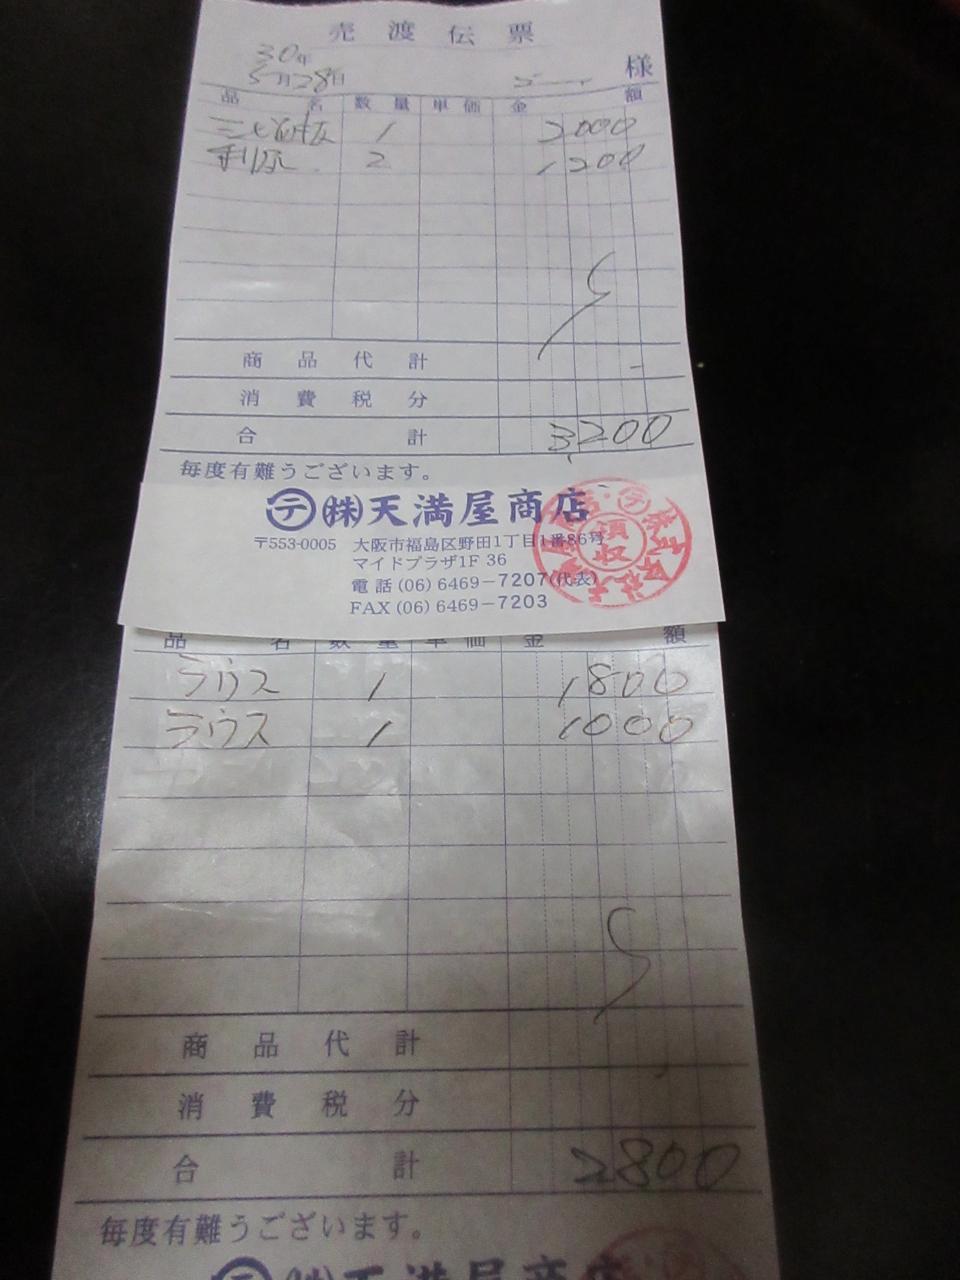 売渡伝票
30年
5月28日
様
品名 数量 単価 金額
1 2000
利尻 2 1200
商品代計
消費税分
合計 3,200
毎度有難うございます。
㋢㈱天満屋商店
〒553-0005 大阪市福島区野田1丁目1番86号
マイドプラザ1F 36
電話(06)6469-7207(代表)
FAX(06)6469-7203
領収
品名 数量 単価 金額
ラウス 1 1800
ラウス 1 1000
商品代計
消費税分
合計 2800
毎度有難うございます。
㋢㈱天満屋商店